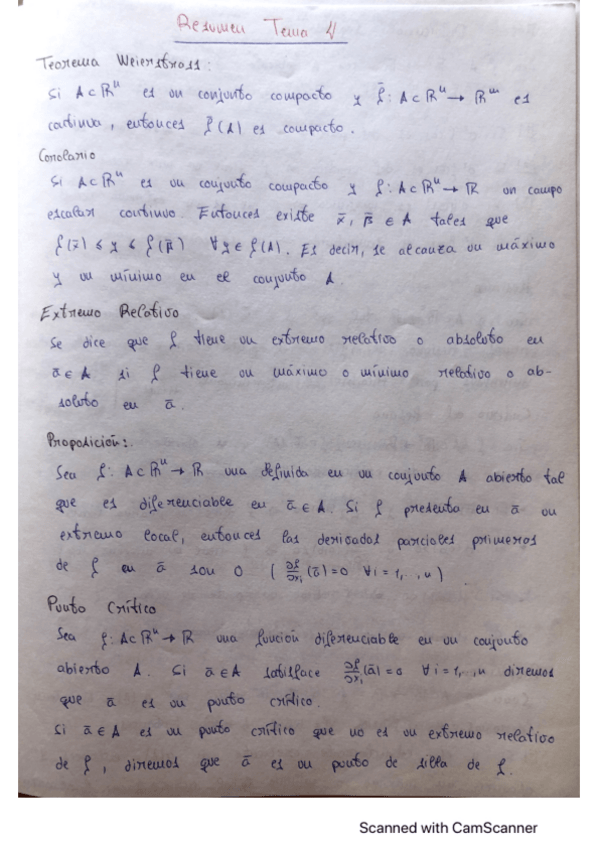 Resumen Tema 4
Teorema Weierstrass:
Si A⊂ℝⁿ es un conjunto compacto y f̄: A⊂ℝⁿ → ℝᵐ es
continua, entonces f(A) es compacto.
Corolario
Si A⊂ℝⁿ es un conjunto compacto y f: A⊂ℝⁿ → ℝ un campo
escalar continuo. Entonces existe x̄, β̄ ∈ A tales que
f(x̄) ≤ y ≤ f(β̄) ∀y∈f(A). Es decir, se alcanza un máximo
y un mínimo en el conjunto A.
Extremo Relativo
Se dice que f tiene un extremo relativo o absoluto en
ā∈A si f tiene un máximo o mínimo relativo o ab-
soluto en ā.
Proposición:
Sea f: A⊂ℝⁿ → ℝ una definida en un conjunto A abierto tal
que es diferenciable en ā∈A. Si f presenta en ā un
extremo local, entonces las derivadas parciales primeras
de f en ā son 0 (∂f/∂xᵢ(ā)=0 ∀i=1,..,n)
Punto Crítico
Sea f: A⊂ℝⁿ → ℝ una función diferenciable en un conjunto
abierto A. Si ā∈A satisface ∂f/∂xᵢ(ā)=0 ∀i=1,..,n diremos
que ā es un punto crítico.
Si ā∈A es un punto crítico que no es un extremo relativo
de f, diremos que ā es un punto de silla de f.
Scanned with CamScanner